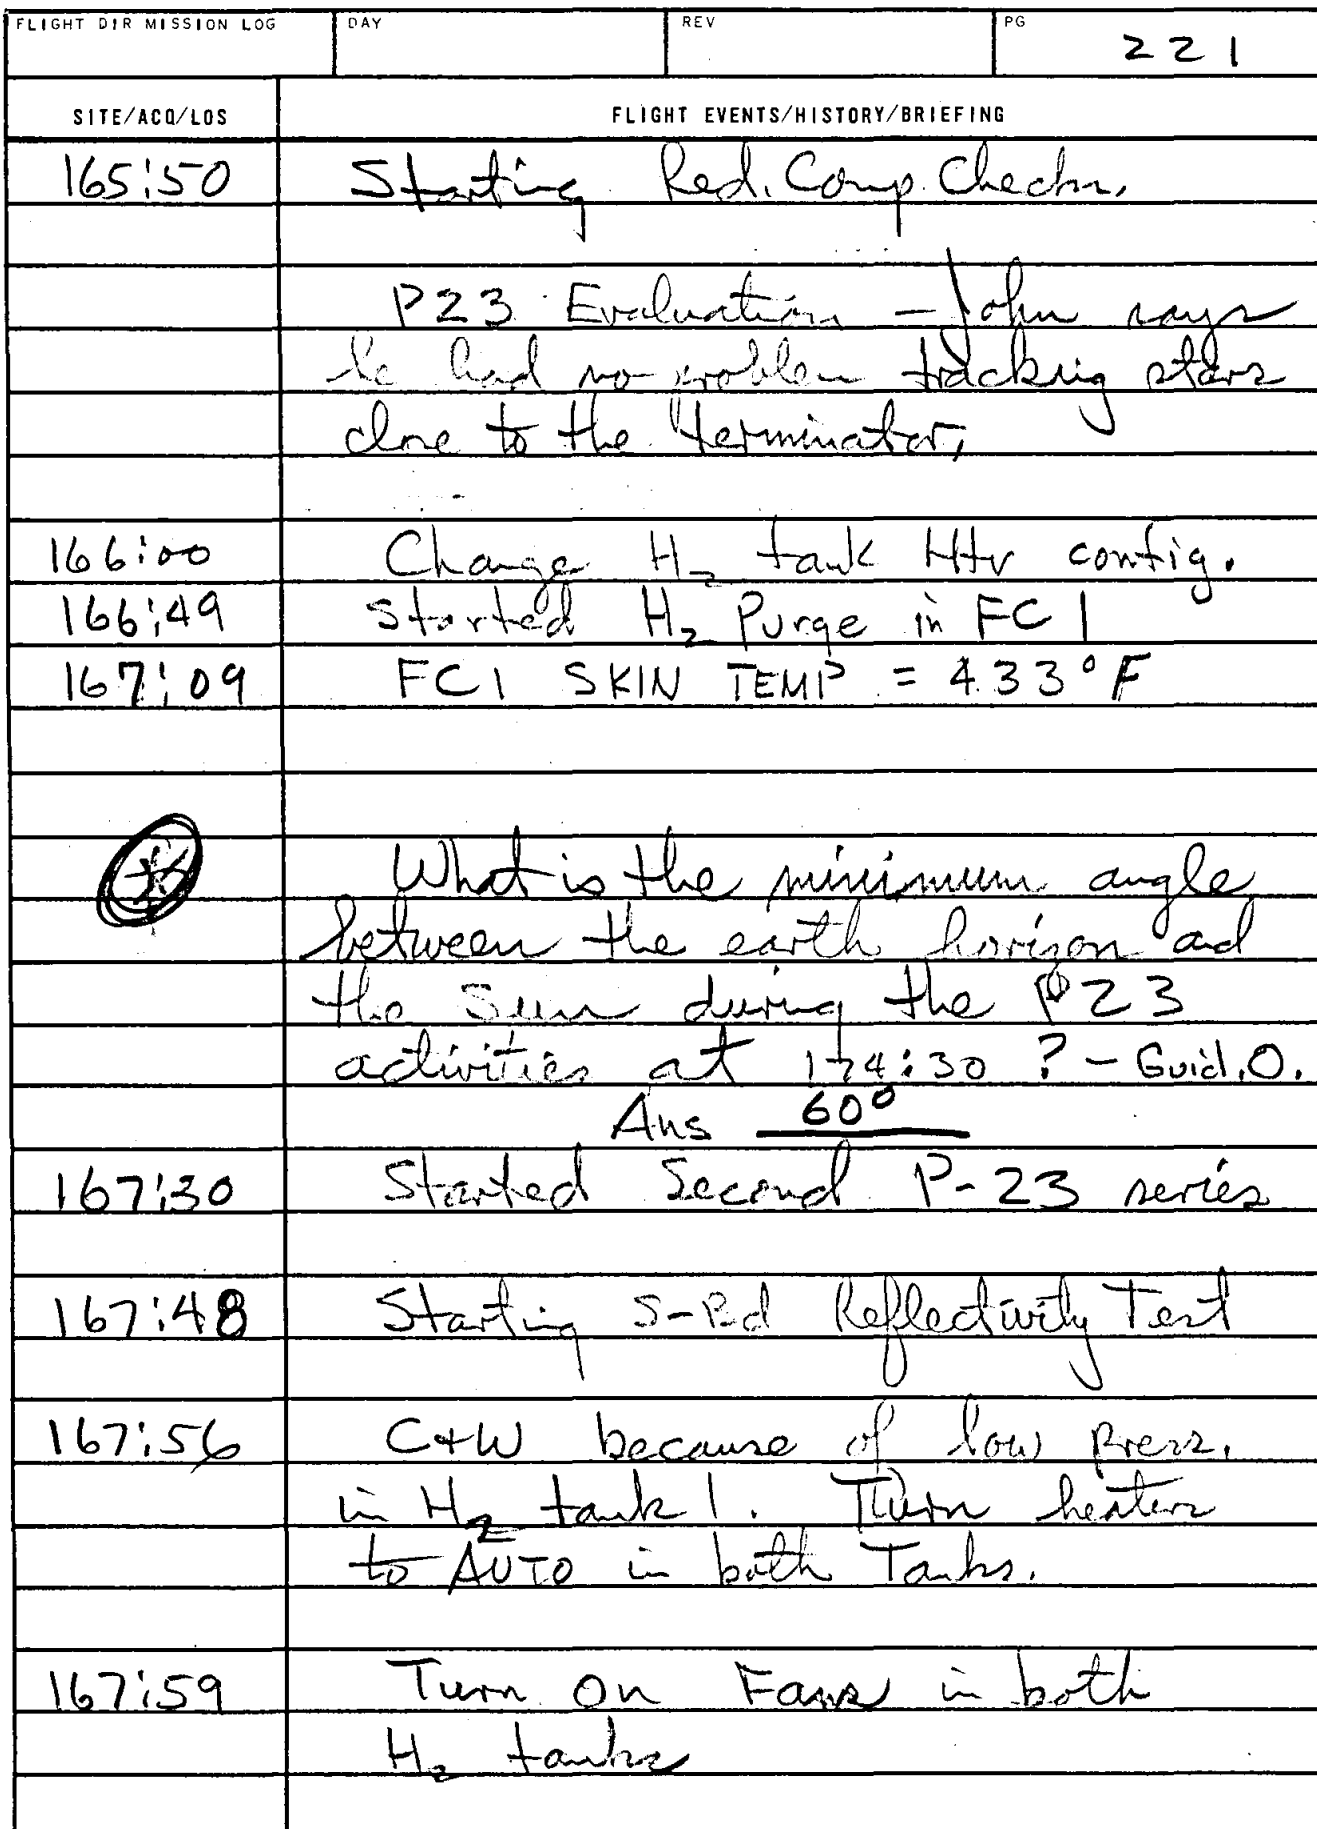 FLIGHT DIR MISSION LOG DAY REV PG
221
SITE/ACQ/LOS FLIGHT EVENTS/HISTORY/BRIEFING
165:50 Starting Red. Comp. Checks.
P23 Evaluation - John says
he had no problem tracking stars
close to the terminator,
166:00 Change H2 tank Htr config.
166:49 Started H2 Purge in FC 1
167:09 FC1 SKIN TEMP = 433°F
* What is the minimum angle
between the earth horizon and
the Sun during the P23
activities at 174:30 ? - Guid.O.
Ans 60°
167:30 Started Second P-23 series
167:48 Starting S-Bd Reflectivity Test
167:56 C+W because of low press.
in H2 tank 1. Turn heaters
to AUTO in both Tanks.
167:59 Turn on Fans in both
H2 tanks